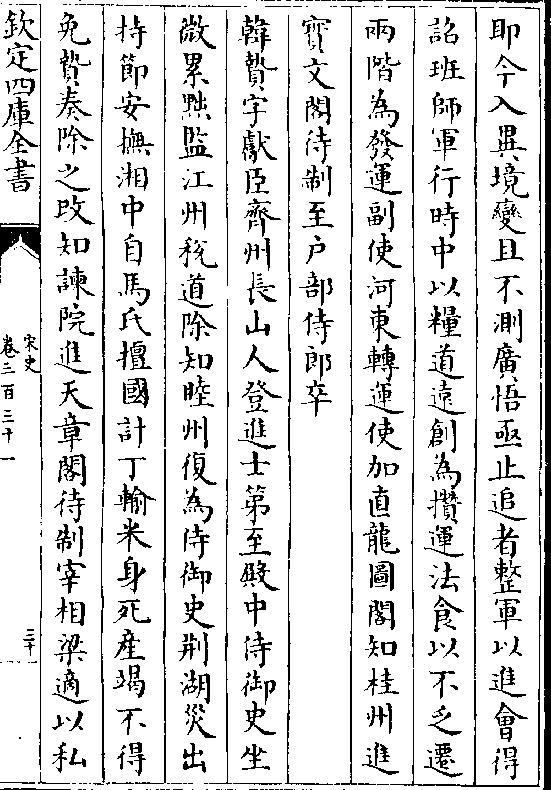 即今入異境變且不測廣悟亟止追者整軍以進會得
詔班師軍行時中以糧道遠創為攢運法食以不乏遷
兩階為發運副使河東轉運使加直龍圖閣知桂州進
寳文閣待制至户部侍郎卒
韓贄字獻臣齊州長山人登進士第至殿中侍御史坐
微累黜監江州稅道除知睦州復為侍御史荆湖災出
持節安撫湘中自馬氏擅國計丁輸米身死產竭不得
免贄奏除之改知諫院進天章閣待制宰相梁適以私
欽定四庫全書
宋史
卷三百三十一
三十